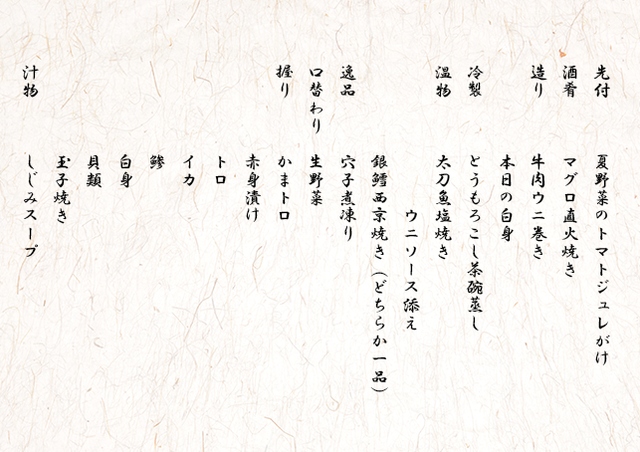 先付　夏野菜のトマトジュレがけ
酒肴　マグロ直火焼き
造り　牛肉ウニ巻き
本日の白身
冷製　とうもろこし茶碗蒸し
温物　太刀魚塩焼き
ウニソース添え
銀鱈西京焼き（どちらか一品）
逸品　穴子煮凍り
口替わり　生野菜
握り　かまトロ
赤身漬け
トロ
イカ
鯵
白身
貝類
玉子焼き
汁物　しじみスープ